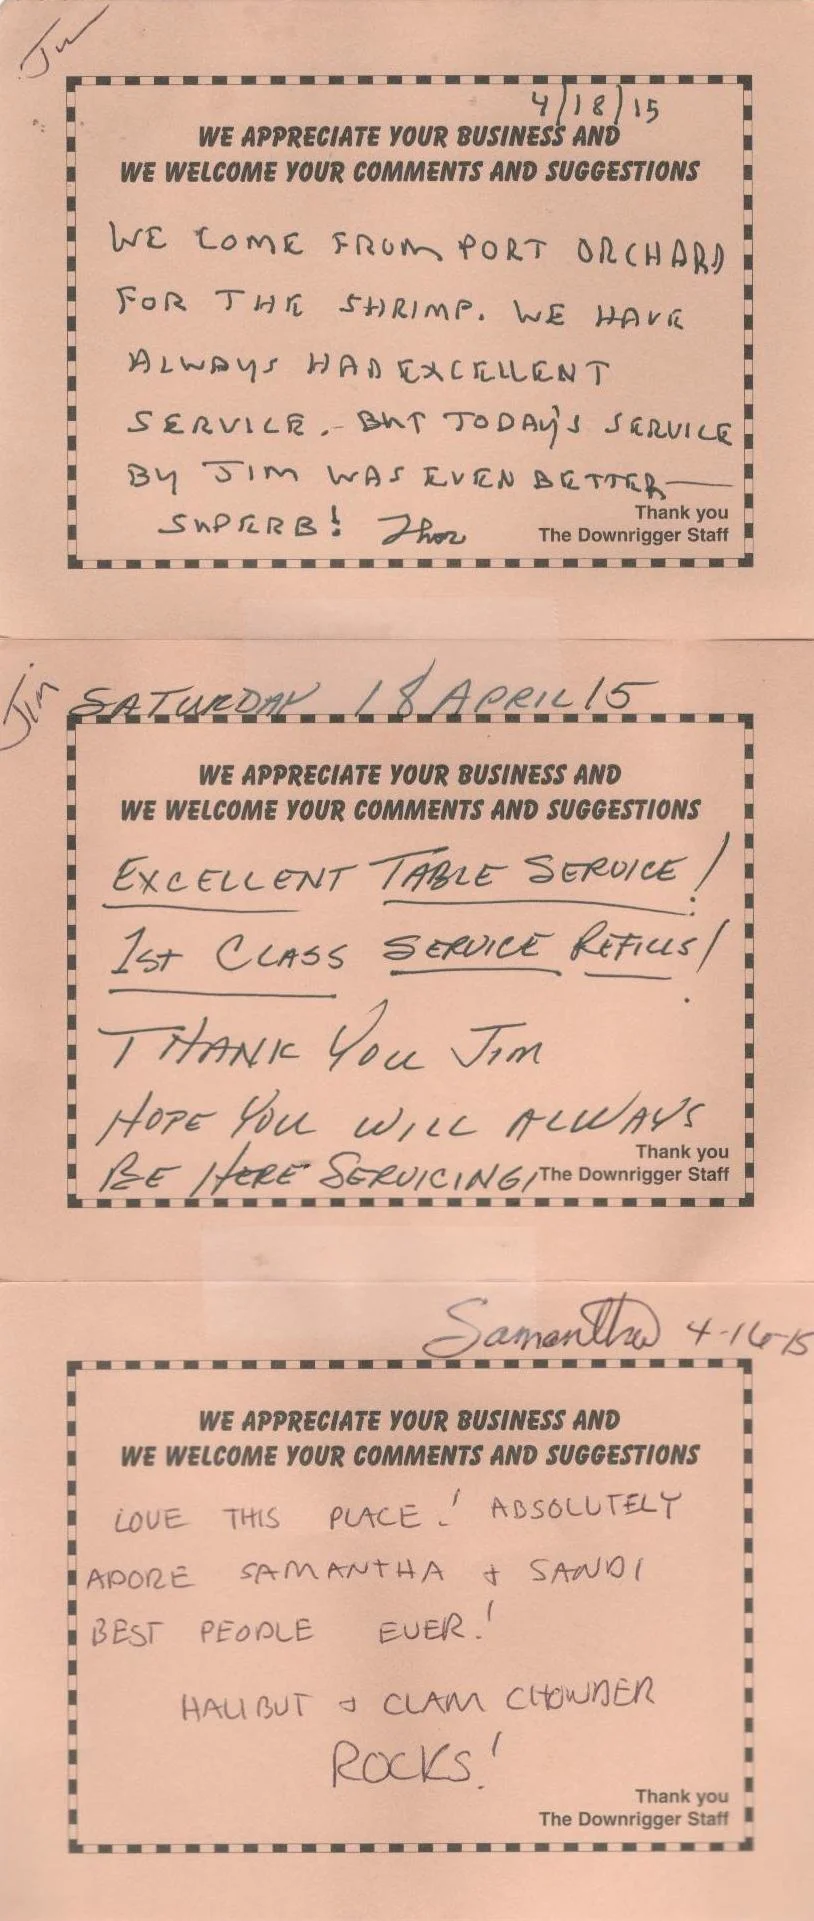 Jim
4/18/15
WE APPRECIATE YOUR BUSINESS AND
WE WELCOME YOUR COMMENTS AND SUGGESTIONS
WE COME FROM PORT ORCHARD
FOR THE SHRIMP. WE HAVE
ALWAYS HAD EXCELLENT
SERVICE. - BUT TODAY'S SERVICE
BY JIM WAS EVEN BETTER —
SUPERB!
Thank you
The Downrigger Staff
Jim
SATURDAY 18 APRIL 15
WE APPRECIATE YOUR BUSINESS AND
WE WELCOME YOUR COMMENTS AND SUGGESTIONS
EXCELLENT TABLE SERVICE!
1ST CLASS SERVICE REFILLS!
THANK YOU JIM
HOPE YOU WILL ALWAYS
BE HERE SERVICING,
Thank you
The Downrigger Staff
Samantha 4-16-15
WE APPRECIATE YOUR BUSINESS AND
WE WELCOME YOUR COMMENTS AND SUGGESTIONS
LOVE THIS PLACE! ABSOLUTELY
ADORE SAMANTHA + SANDI
BEST PEOPLE EVER!
HALIBUT + CLAM CHOWDER
ROCKS!
Thank you
The Downrigger Staff